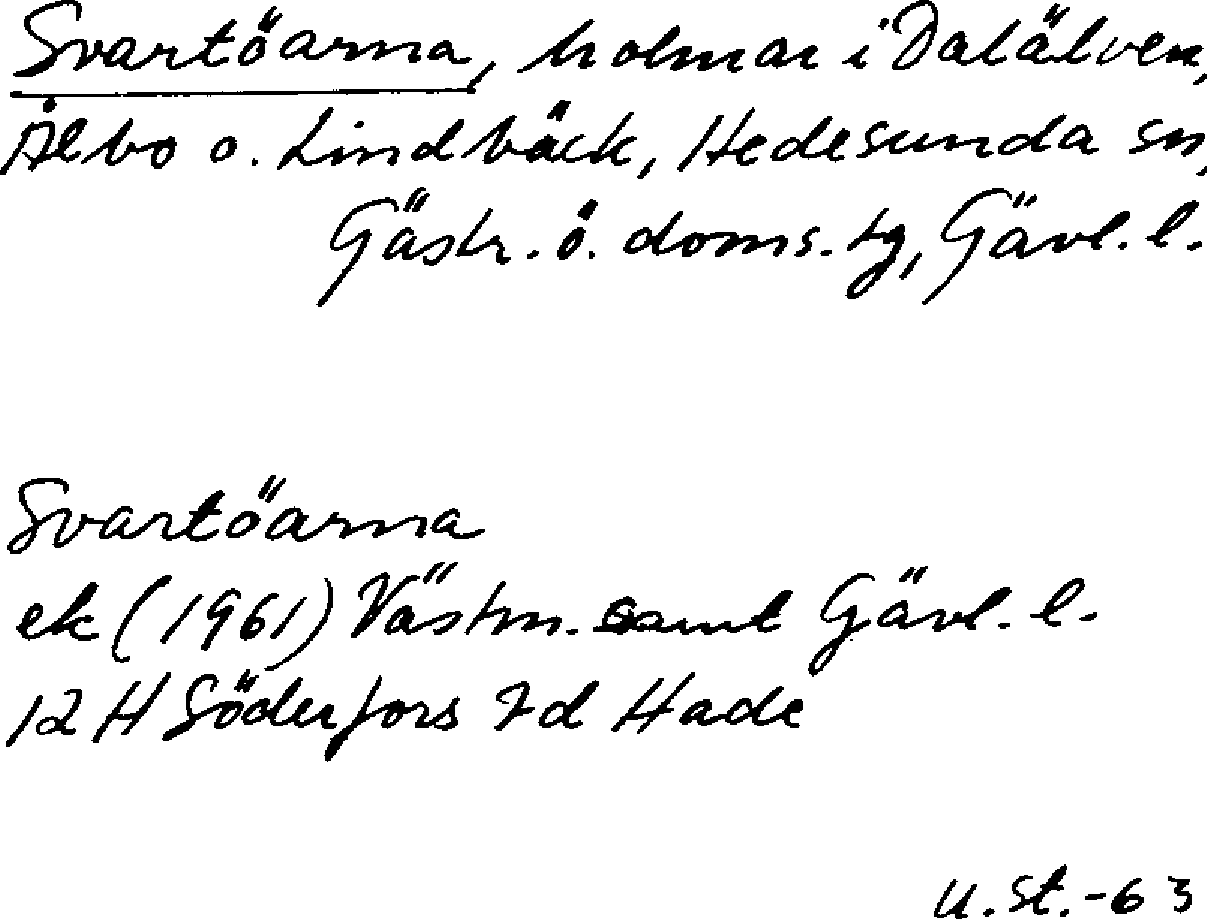 Svartöarna, holmar i Dalälven,
Ålbo o. Lindbäck, Hedesunda sn,
Gästr. ö. doms. tg, Gävl. l.
Svartöarna
ek (1961) Västm. samt Gävl. l.
12 H Söderfors 7d Hade
U. St. -63